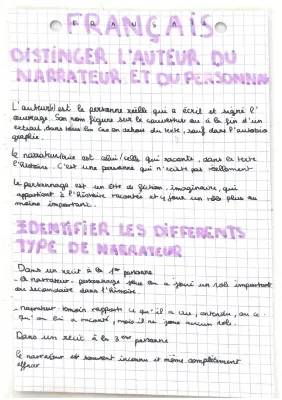 FRANÇAIS
DISTINGER L'AUTEUR DU
NARRATEUR ET DU PERSONNA
L'auteur(e) est la personne réelle qui a écrit et signé l'
ouvrage. Son nom figure sur la couverture ou à la fin d'un
extrait, dans tous les cas en dehors du texte, sauf dans l'autobio
graphie.
Le narrateur/rice est celui/celle qui raconte, dans le texte
l'histoire. C'est une personne qui n'existe pas réellement
Le personnage est un être de fiction, imaginaire, qui
appartient à l'histoire racontée et y joue un rôle plus ou
moins important.
IDENTIFIER LES DIFFERENTS
TYPE DE NARRATEUR
Dans un récit à la 1ère personne
- Le narrateur-personnage joue ou a joué un rôle important
ou secondaire dans l'histoire.
- narrateur-témoin rapporte ce qu'il a vu, entendu, ou ce
qu'on lui a raconté, mais il ne joue aucun rôle.
Dans un récit à la 3ème personne
le narrateur est souvent inconnu et même complètement
effacé